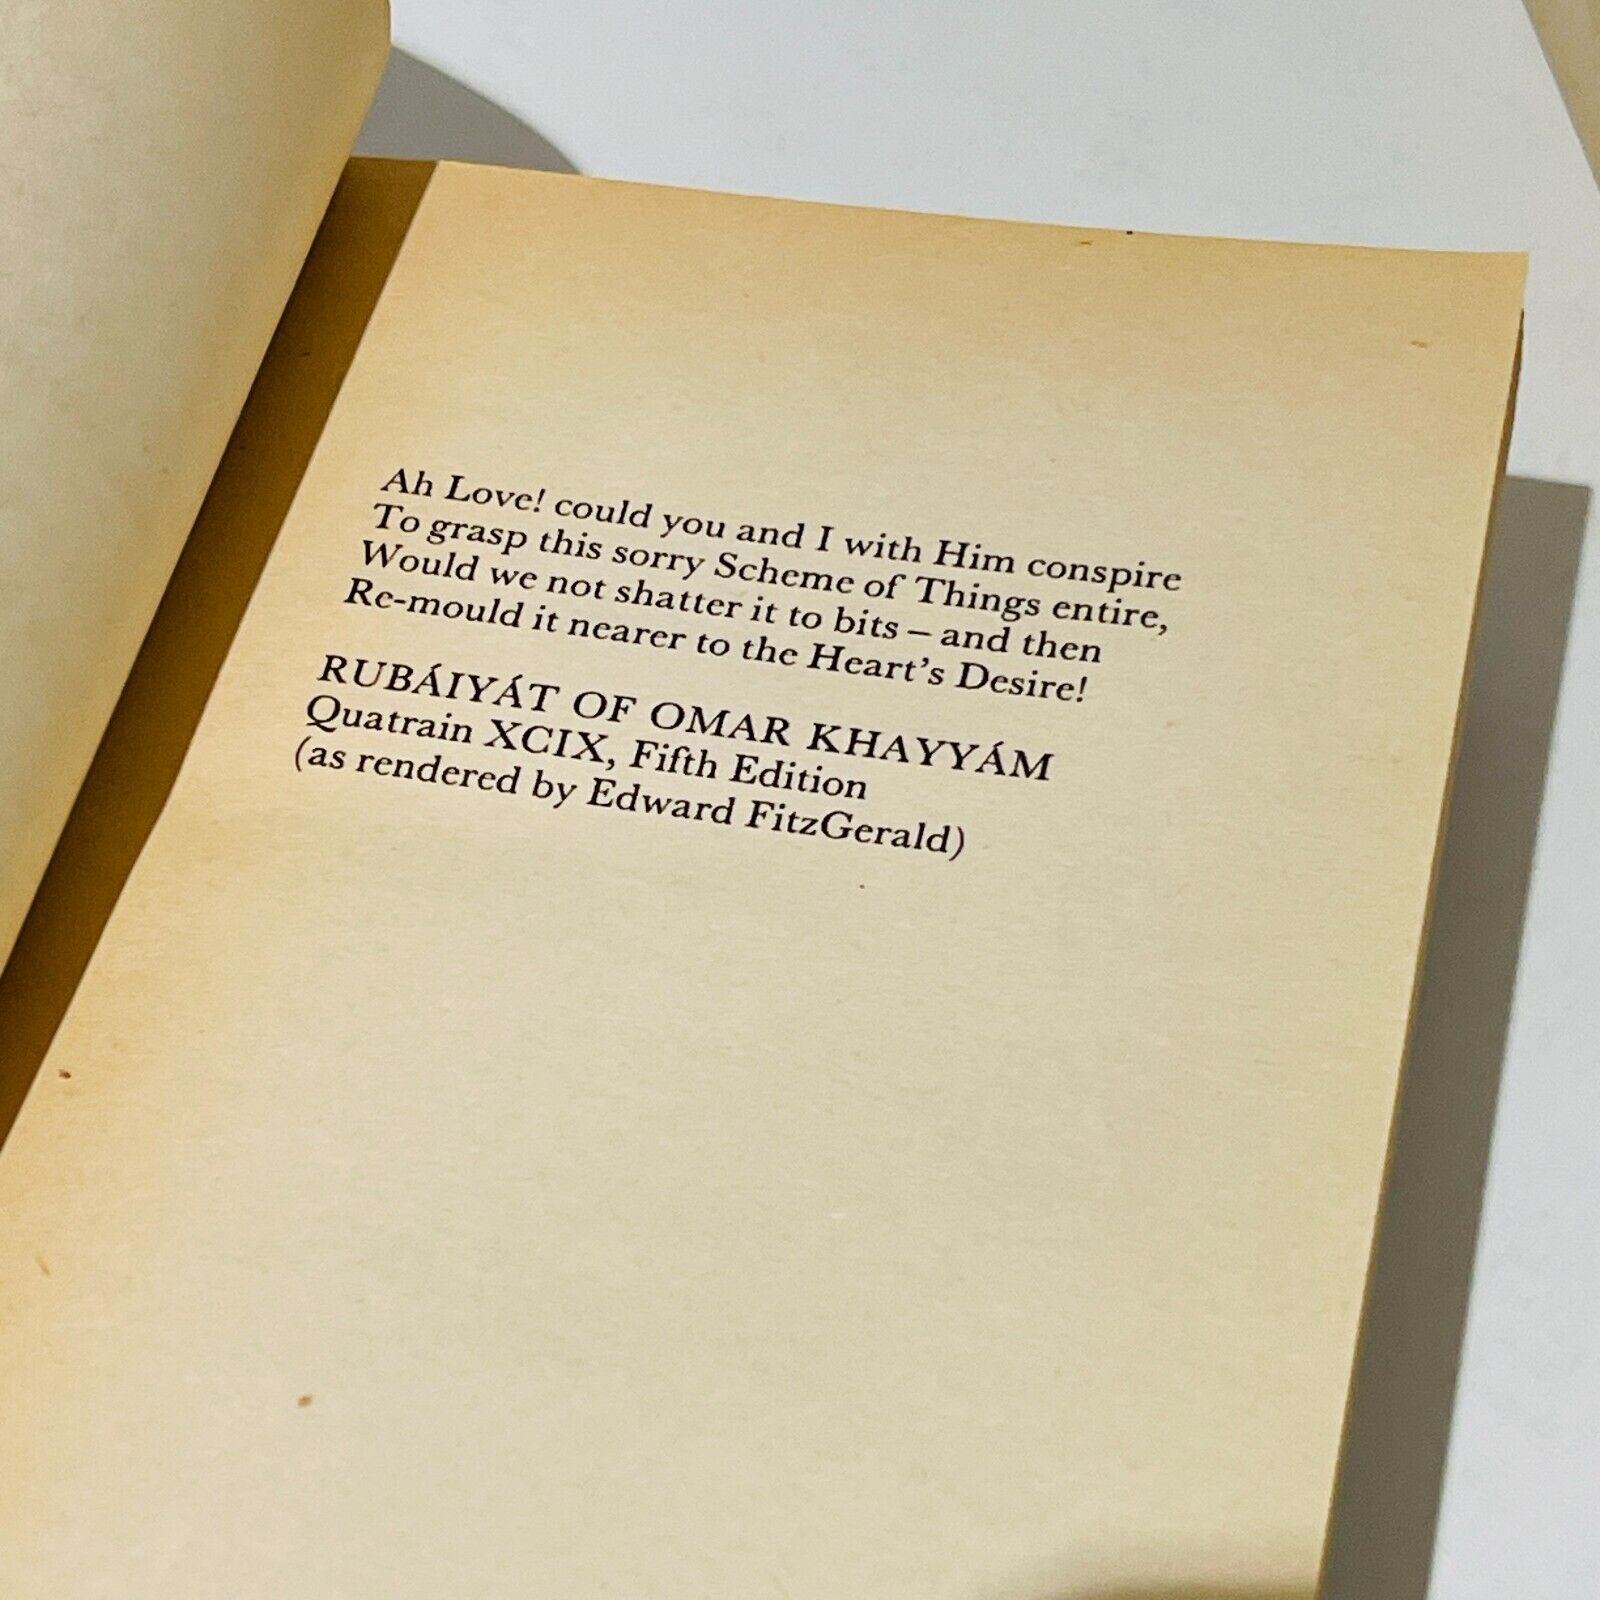 Ah Love! could you and I with Him conspire
To grasp this sorry Scheme of Things entire,
Would we not shatter it to bits – and then
Re-mould it nearer to the Heart's Desire!
RUBÁIYÁT OF OMAR KHAYYÁM
Quatrain XCIX, Fifth Edition
(as rendered by Edward FitzGerald)